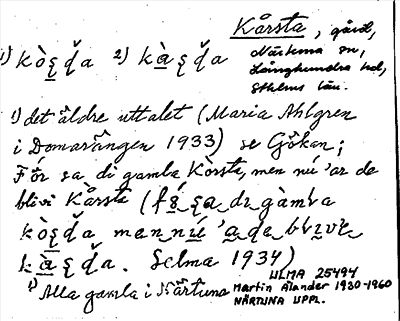 Kårsta, gård,
Närtuna sn,
Långhundra hd,
Sthlms län.
1) kò̱ȿɖa 2) kà̱ȿɖa
1) det äldre uttalet (Maria Ahlgren
i Domarängen 1933) se Gökan;
Förr sa di gamla Kòrsta, men nú 'ar de
blivi Kårsta (
gàmba
kò̱ȿɖa man nú̱
kà̱ȿɖa. Selma 1934)
2) Alla gamla i Närtuna
ULMA 25494
Martin Ålander 1930-1960
NÄRTUNA UPPL.